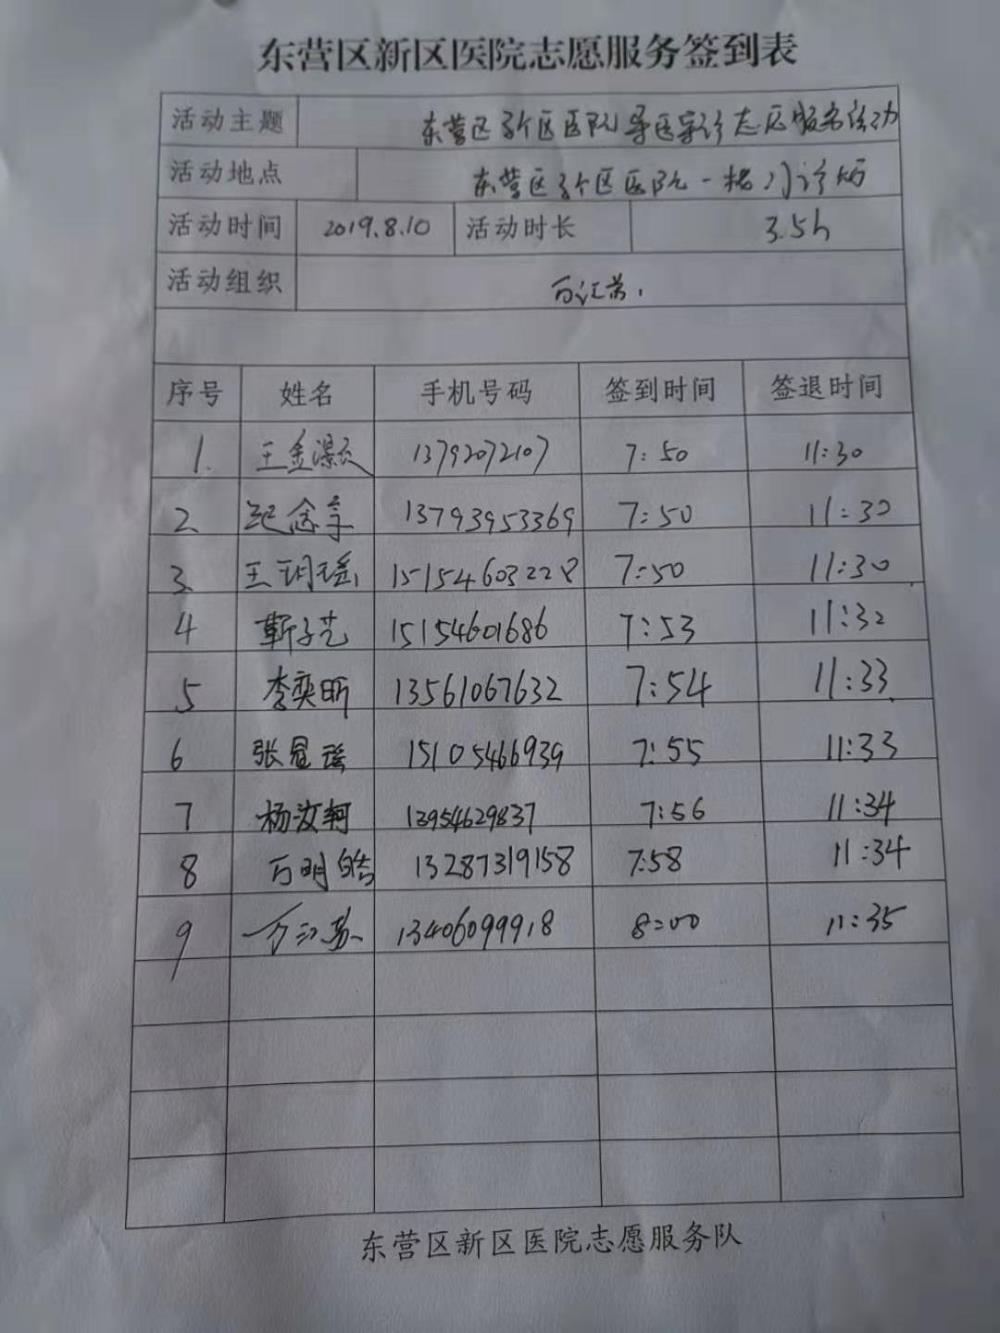 东营区新区医院志愿服务签到表
活动主题 东营区新区医院导医导诊志愿服务活动
活动地点 东营区新区医院一楼门诊部
活动时间 2019.8.10 活动时长 3.5h
活动组织 万江苏
序号 姓名 手机号码 签到时间 签退时间
1. 王金灏 13792072107 7:50 11:30
2 纪念亭 13793953369 7:50 11:30
3. 王玥瑶 15154603228 7:50 11:30
4 靳子艺 15154601686 7:53 11:32
5 李奕昕 13561067632 7:54 11:33
6 张显瑶 15105466939 7:55 11:33
7 杨汶轲 13954629837 7:56 11:34
8 万明皓 13287319158 7:58 11:34
9 万江苏 13406099918 8:00 11:35
东营区新区医院志愿服务队